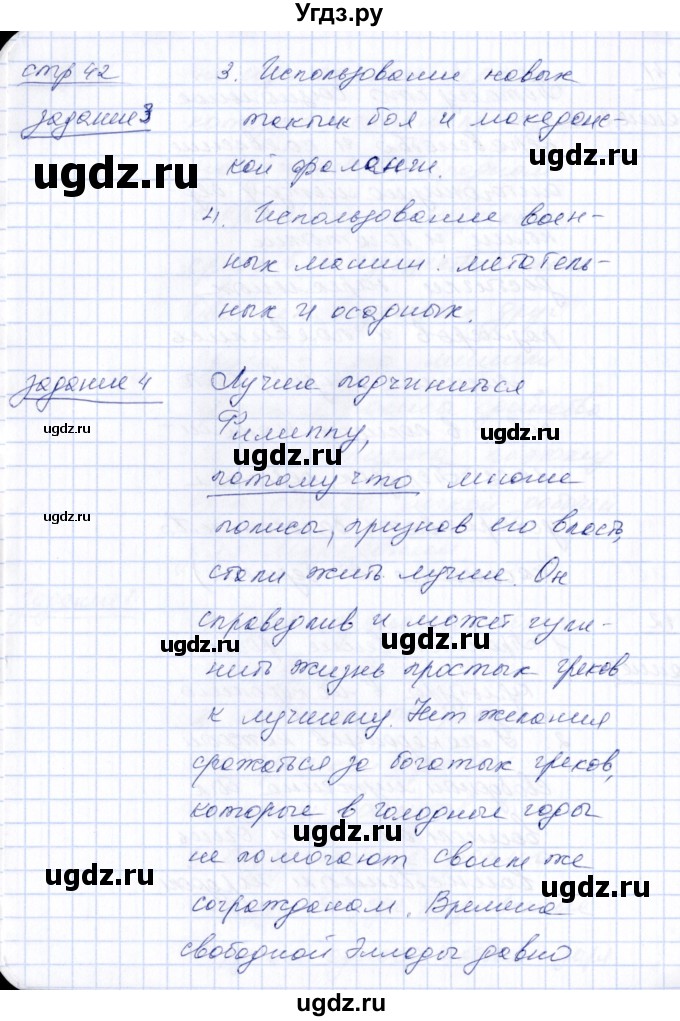 Угдз.ру
стр 42
задание 3
3. Использование новых
тактик боя и македонс-
кой фаланги.
ugdz.ru
ugdz.ru
4. Использование воен-
ных машин: метатель-
ных и осадных.
задание 4
Лучше подчиниться
Филиппу,
ugdz.ru
ugdz.ru
ugdz.ru
потому что многие
полисы, признав его власть,
ugdz.ru
стали жить лучше. Он
справедлив и может
ugdz.ru
ugdz.ru
нить жизнь простых греков
к лучшему. Нет желания
сражаться за богатых греков,
которые в голодные годы
ugdz.ru
не помогают своим же
ugdz.ru
ugdz.ru
согражданам. Времена
свободной Эллады давно
ugdz.ru